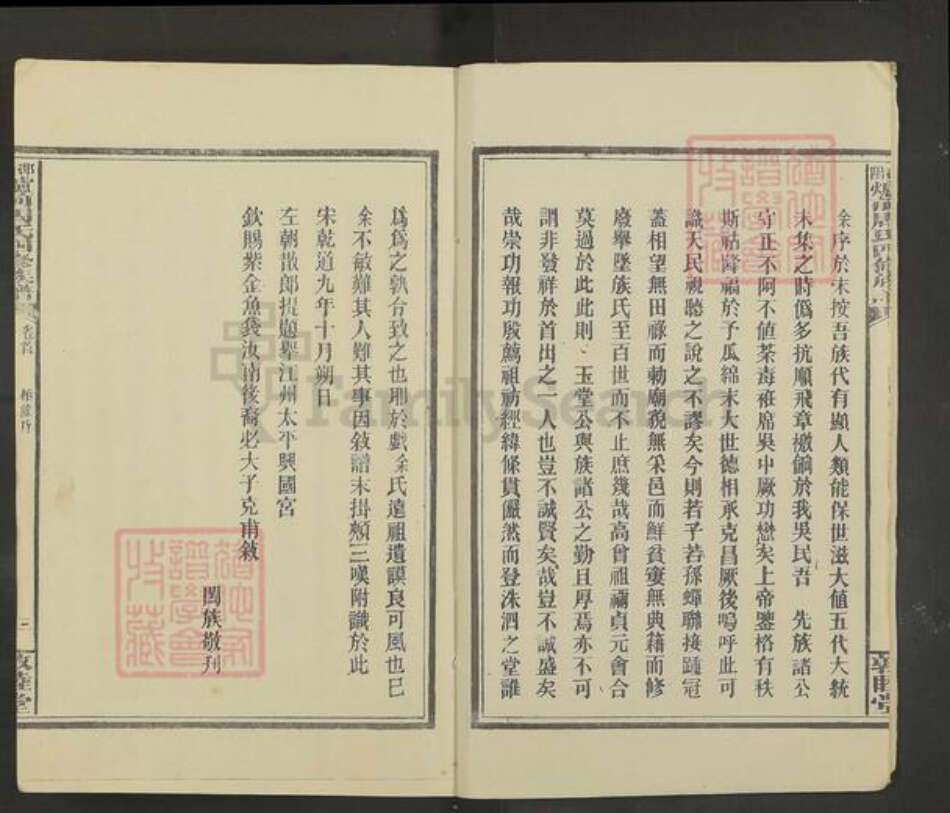 余序於宋按吾族代有顯人類能保世滋大値五代大統
未集之時僞多抗順飛章檄餉於我吳民吾 先族諸公
守正不阿不値荼毒袵席吳中厥功懋矣上帝鑒格有秩
斯祜篤福於予瓜綿末大世德相承克昌厥後嗚呼此可
識天民視聽之說之不謬矣今則若子若孫蟬聯接踵冠
蓋相望無田祿而勅廟貌無采邑而鮮貧窶無典藉而修
廢舉墜族氏至百世而不止庶幾哉高曾祖禰貞元會合
莫過於此此則 玉堂公與族諸公之勤且厚焉亦不可
謂非發祥於首出之一人也豈不誠賢矣哉豈不誠盛矣
哉崇功報功駿薦祖祊經緯條貫儼然而登洙泗之堂誰
爲爲之孰令致之也耶於戲徐氏遠祖遺謨良可風也已
余不敏難其人難其事因敍譜末掛頰三嘆附識於此
宋乾道九年十月朔日
左朝散郎提題舉江州太平興國宮
欽賜紫金魚袋汝南後裔必大子充甫敍
闔族敬刋
卷首
三
敦睦堂
敦睦堂
FamilySearch